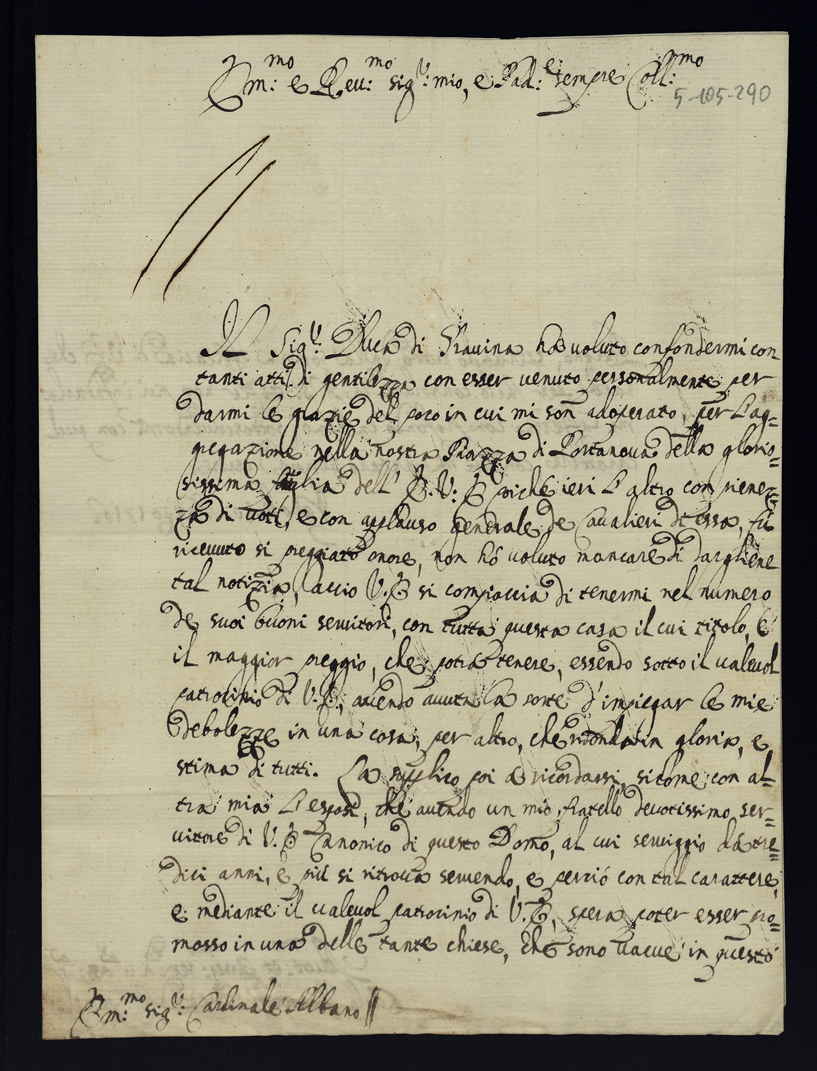 Em:mo e Rev:mo sig.r mio, e Pad:e sempre Coll:mo
5-105-290
Il Sig.r Duca di Gravina hà voluto confondermi con
tanti atti di gentilezza con esser venuto personalmente per
darmi le grazie del poco in cui mi son adoperato, per l'ag=
gregazione nella nostra Piazza di Portanova della glorio=
sissima dell' E.V. E perche ieri l'altro con pienez=
za di voti, e con applauso generale de Cavalieri di essa, fù
ricevuto si preggiato onore, non hò voluto mancare di dargliene
tal notizia, acciò V.E si compiaccia di tenermi nel numero
de suoi buoni servitori, con tutta questa casa il cui titolo, è
il maggior preggio, che potrà tenere, essendo sotto il valevol
patrocinio di V.E., avendo avuta la sorte d'impiegar le mie
debolezze in una cosa, per altro, che ridonda in gloria, e
stima di tutti. La supplico poi à ricordarsi, sicome con al=
tra mia l'esposi, che avendo un mio fratello devotissimo ser=
vitore di V.E Canonico di questo Domo, al cui serviggio dà tre=
dici anni, e più si ritrova servendo, e perciò con tal carattere,
e mediante il valevol patrocinio di V.E, spera poter esser pro=
mosso in una delle tante chiese, che sono vacue in questo
Em:mo sig.r Cardinale Albano